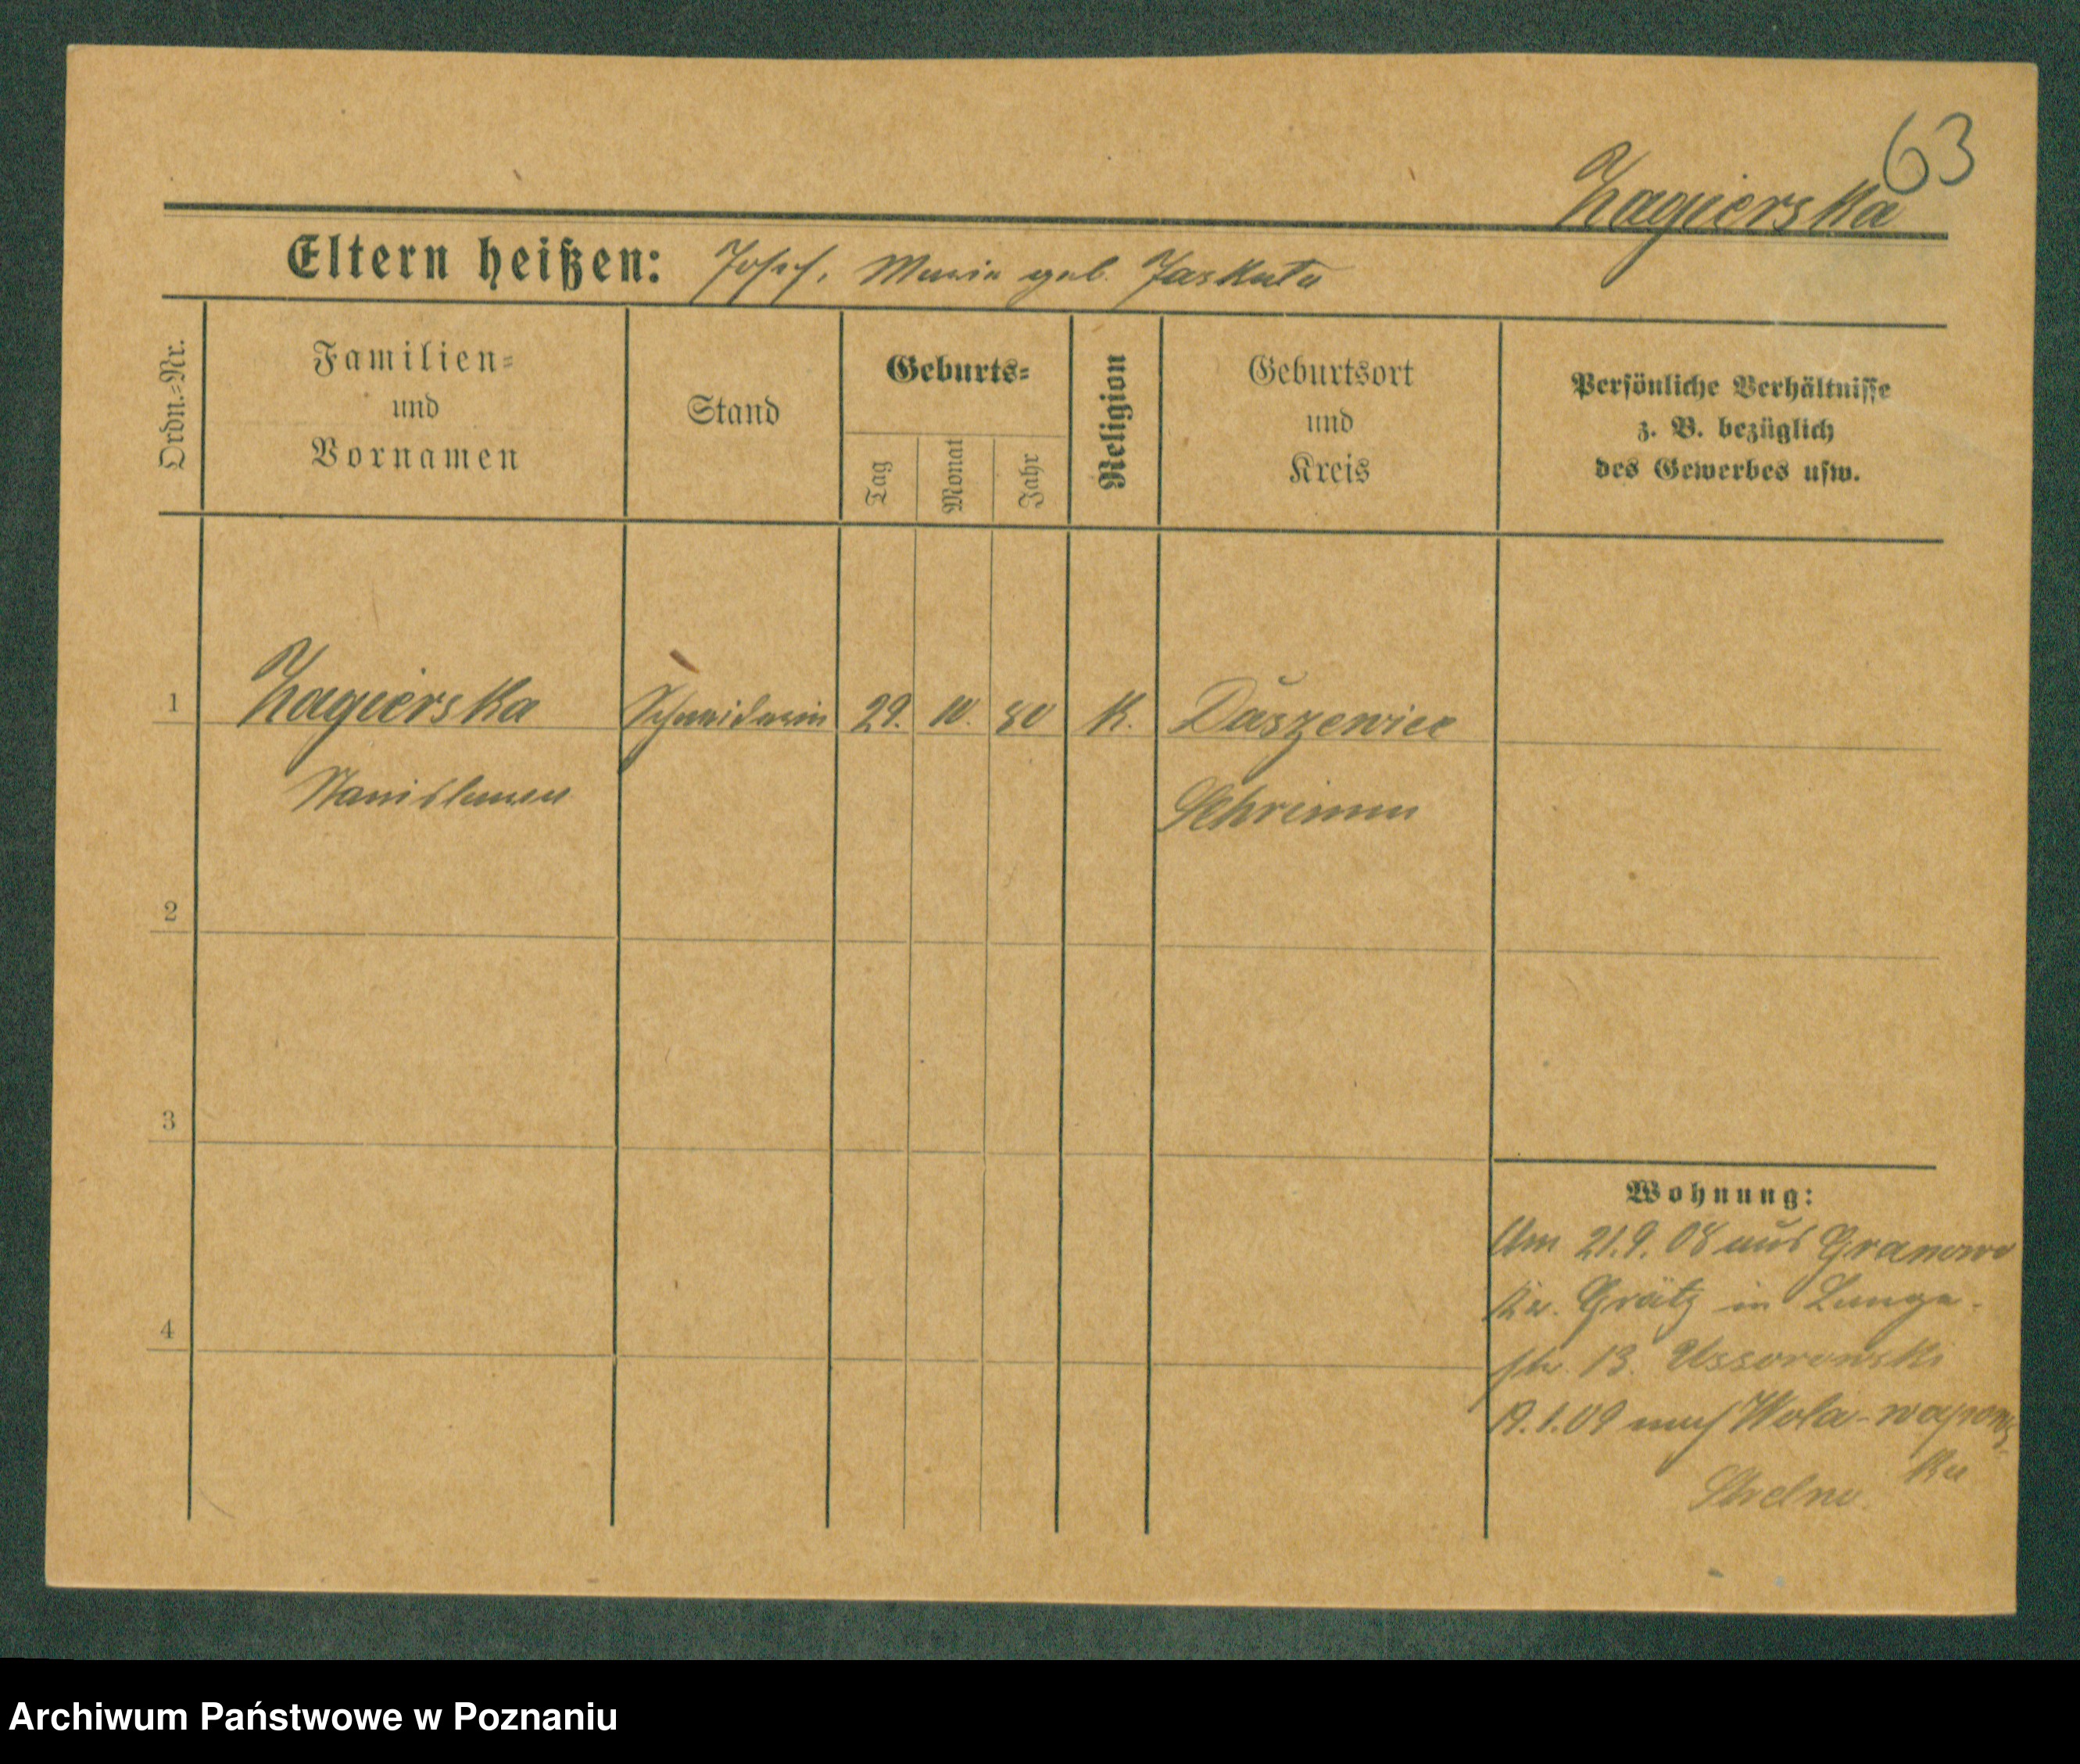 63
Zagierska
Eltern heißen: Josef, Maria geb. Jaskuta
Ordn.=Nr.
Familien=
und
Vornamen
Stand
Geburts=
Tag
Monat
Jahr
Religion
Geburtsort
und
Kreis
Persönliche Verhältnisse
z. B. bezüglich
des Gewerbes usw.
1 Zagierska Schneiderin 29. 10. 80 K. Daszewice
Stanislawa Schrimm
2
3
4
Wohnung:
Am 21.9.08 aus Granowo
Kr. Grätz in Lange-
str. 13.
19.1.09 nach Wola-
Kr
Strelno.
Archiwum Państwowe w Poznaniu